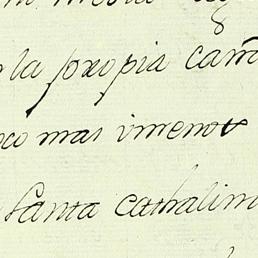 la propia cam
oco mas vmenos
Santa cathalin